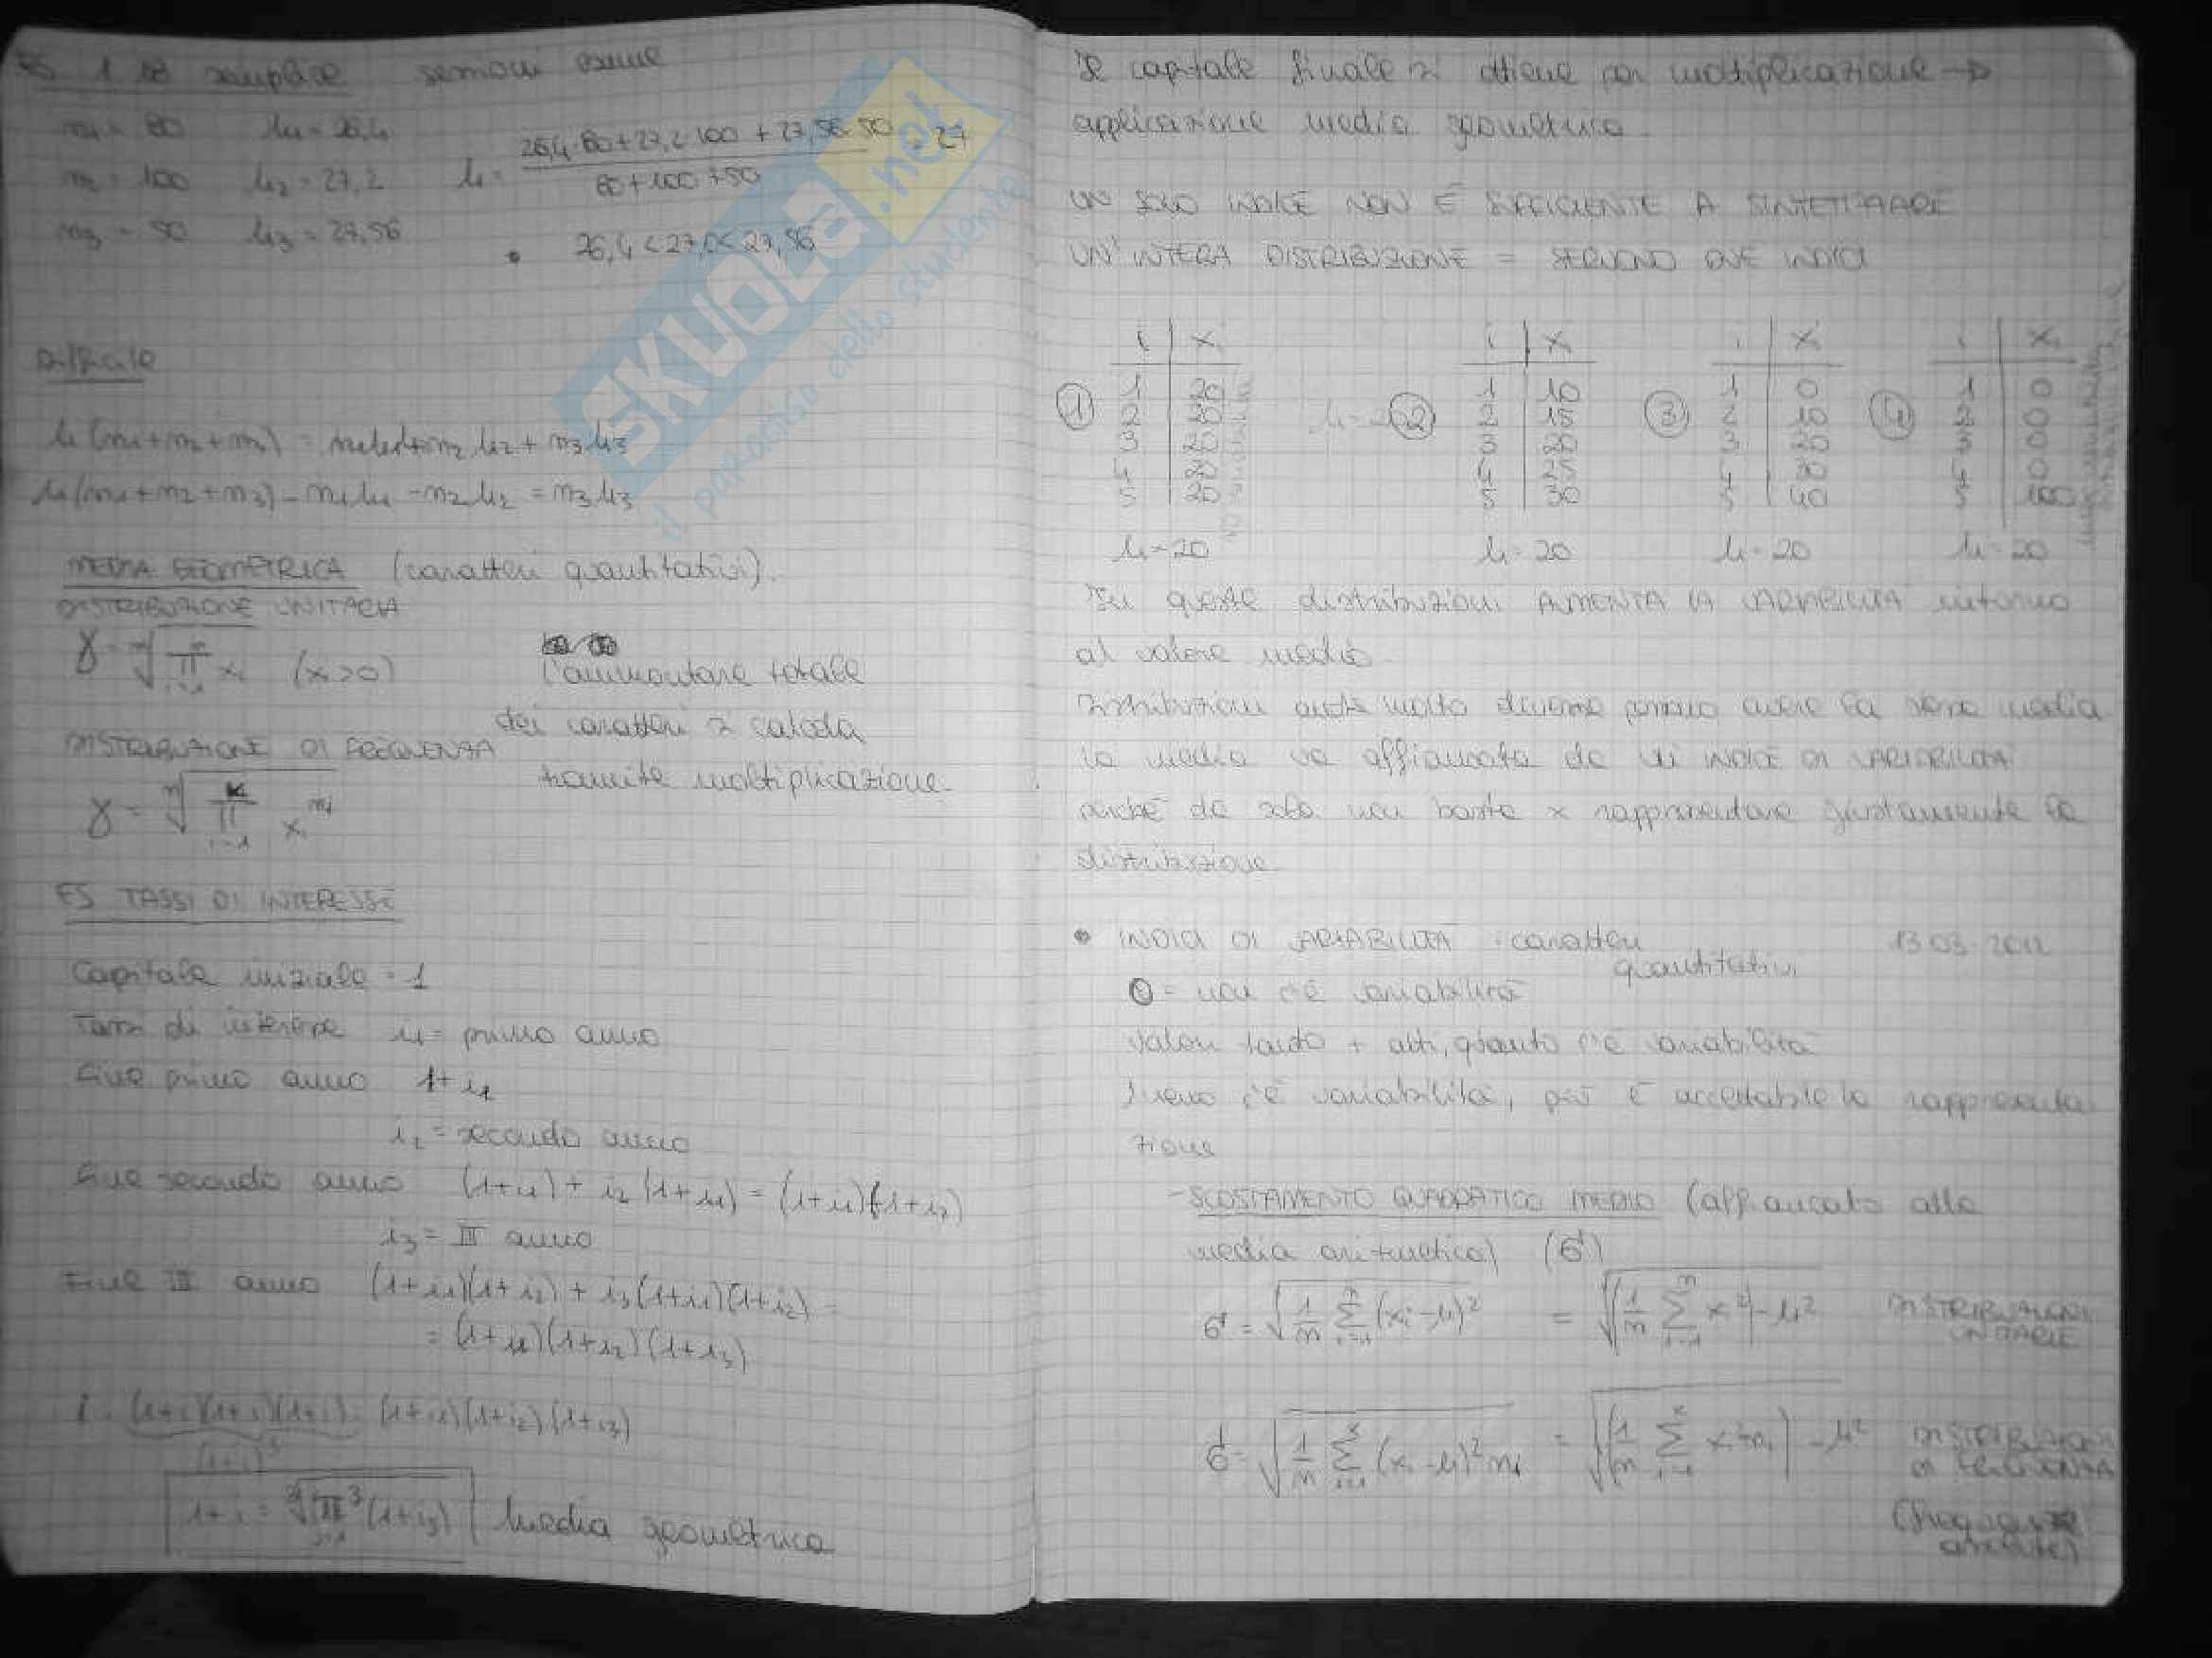 ES 1 semplice sessioni esame
n1 = 80 μ1 = 26,4
n2 = 100 μ2 = 27,2 μ = (26,4·80+27,2·100+27,56·50)/(80+100+50) = 27
n3 = 50 μ3 = 27,56
• 26,4<27,0<27,56
Difficile
μ(n1+n2+n3) = n1μ1+n2μ2+n3μ3
μ(n1+n2+n3)-n1μ1-n2μ2 = n3μ3
MEDIA GEOMETRICA (caratteri quantitativi).
DISTRIBUZIONE UNITARIA
γ = ⁿ√∏ xi (x>0)
l'ammontare totale
dei caratteri si calcola
tramite moltiplicazione.
DISTRIBUZIONE DI FREQUENZA
γ = ⁿ√∏ xi^ni
ES TASSI DI INTERESSE
Capitale iniziale = 1
Tassi di interesse i1 = primo anno
Fine primo anno 1+i1
i2 = secondo anno
Fine secondo anno (1+i1)+i2(1+i1) = (1+i1)(1+i2)
i3 = III anno
Fine III anno (1+i1)(1+i2)+i3(1+i1)(1+i2) =
= (1+i1)(1+i2)(1+i3)
(1+i)(1+i)(1+i) = (1+i1)(1+i2)(1+i3)
(1+i)³
1+i = ³√∏(1+ij) Media geometrica
SKUOLA.net
il paradiso dello studente
Il capitale finale si ottiene per moltiplicazione →
applicazione media geometrica
UN SOLO INDICE NON È SUFFICIENTE A SINTETIZZARE
UN'INTERA DISTRIBUZIONE = SERVONO DUE INDICI
i xi i xi i xi i xi
① 1 20 ② 1 10 ③ 1 0 ④ 1 0
2 20 2 15 2 10 2 0
3 20 3 20 3 20 3 0
4 20 4 25 4 30 4 0
5 20 5 30 5 40 5 100
μ=20 μ=20 μ=20 μ=20
In queste distribuzioni AUMENTA LA VARIABILITÀ intorno
al valore medio.
Distribuzioni anche molto diverse possono avere la stessa media
la media va affiancata da un INDICE DI VARIABILITÀ
perché da sola non basta x rappresentare giustamente la
distribuzione
• INDICI DI VARIABILITÀ caratteri quantitativi 13 03 2012
0 = non c'è variabilità
valori tanto + alti, quanto c'è variabilità
Meno c'è variabilità, più è accettabile la rappresenta
zione
-SCOSTAMENTO QUADRATICO MEDIO (affiancato alla
media aritmetica) (σ)
σ = √(1/n Σ(xi-μ)²) = √((1/n Σ xi²)-μ²) DISTRIBUZIONI UNITARIE
σ = √(1/n Σ(xi-μ)² ni) = √((1/n Σ xi² ni)-μ²) DISTRIBUZIONI DI FREQUENZA